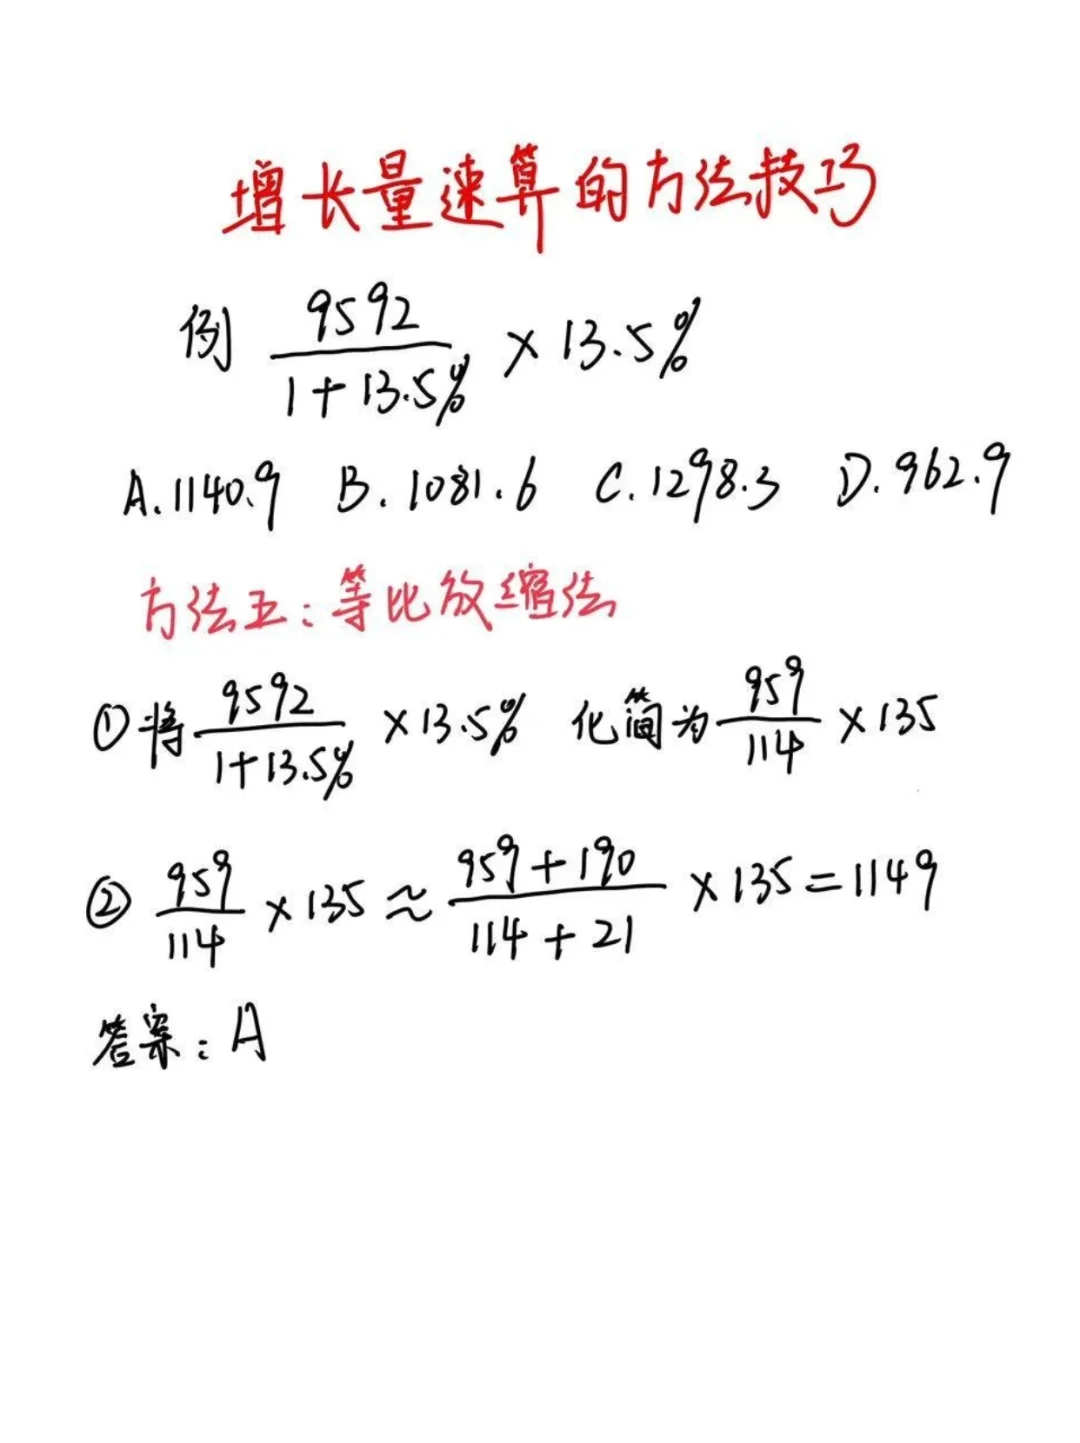 增长量速算的方法技巧
例 9592/(1+13.5%) × 13.5%
A.1140.9 B.1081.6 C.1298.3 D.962.9
方法五:等比放缩法
①将 9592/(1+13.5%) ×13.5% 化简为 959/114 ×135
② 959/114 ×135 ≈ (959+190)/(114+21) ×135=1149
答案:A